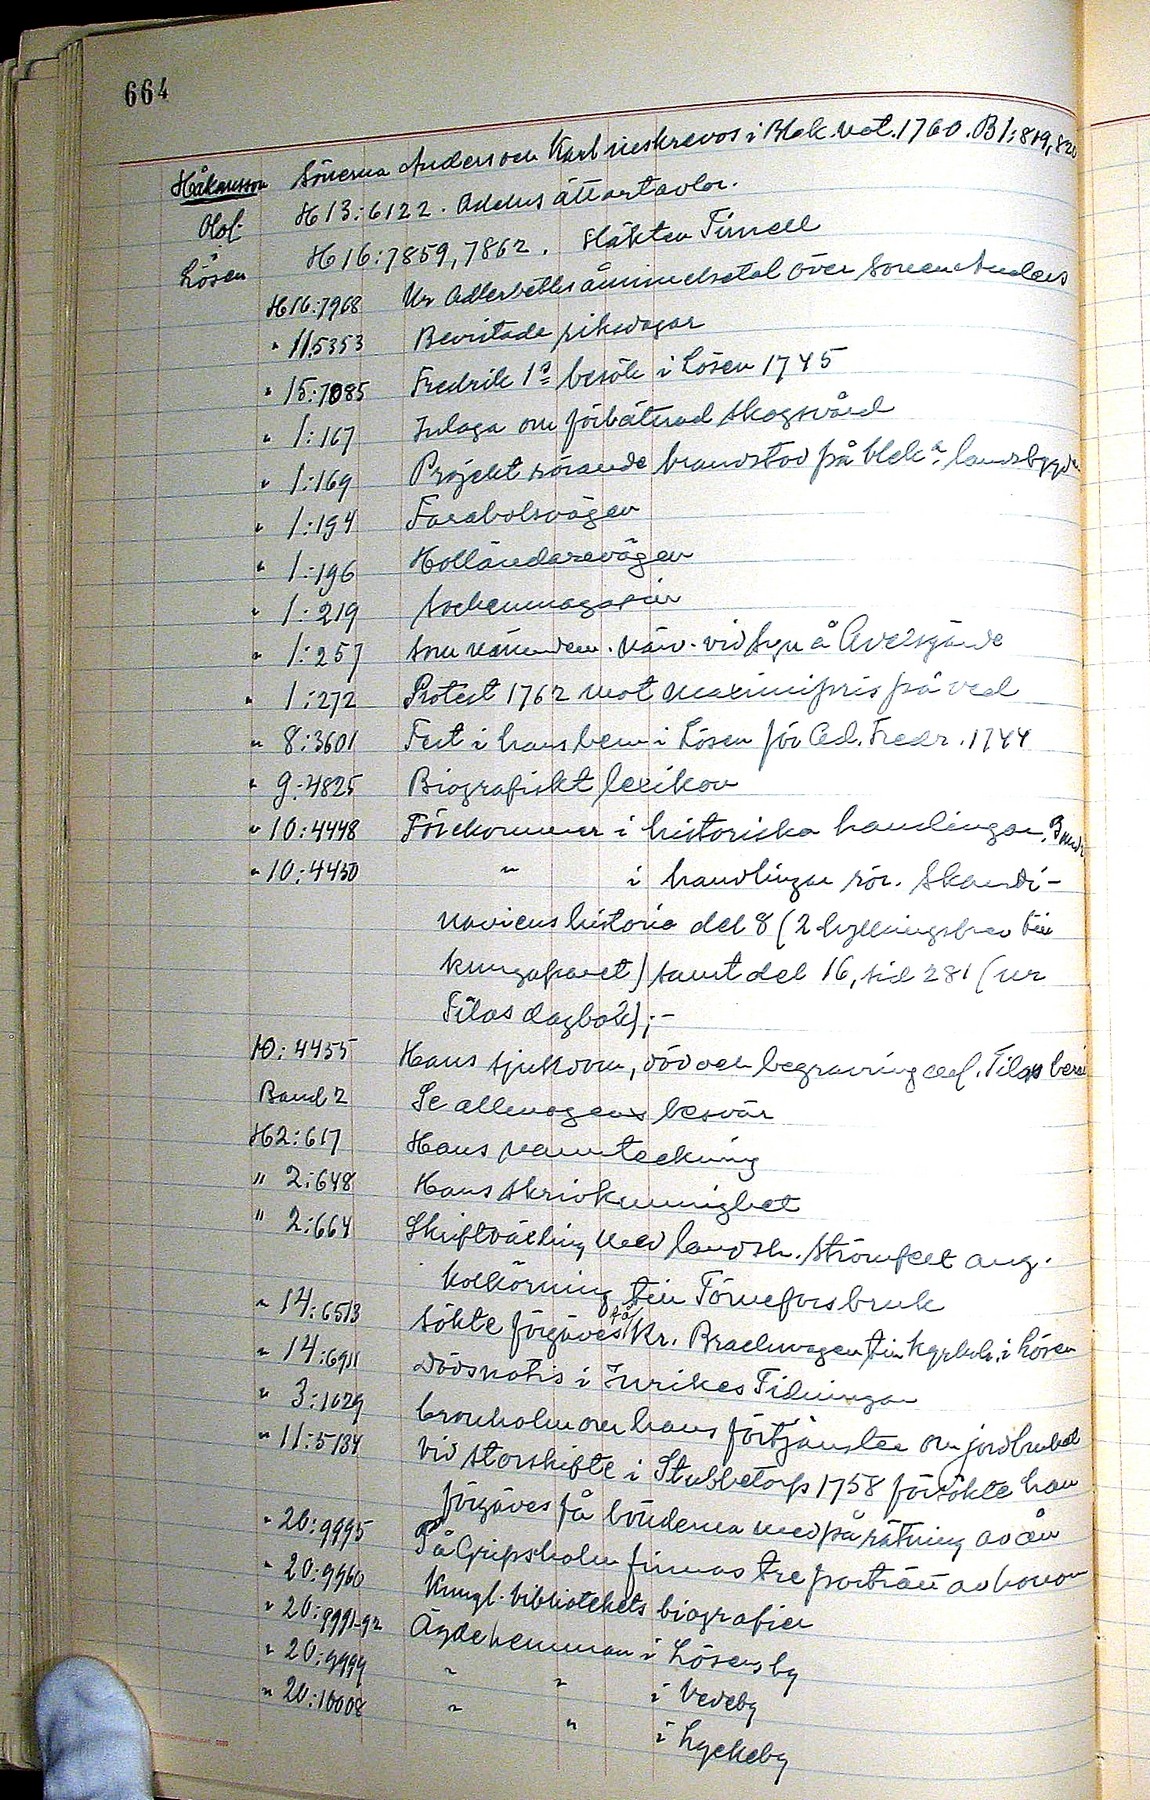 664
Håkansson Sönerna Anders och Karl inskrevos i Blek. nat. 1760. B1:819,820
Olof H13:6122. Adelns ättartavlor.
Lösen H16:7859,7862. Släkten Tirnell
H16:7968 Ur Adlerbeths åminnelsetal över sonen Anders
" 11:5353 Bevistade riksdagar
" 15:7085 Fredrik 1s besök i Lösen 1745
" 1:167 Inlaga om förbättrad skogsvård
" 1:169 Projekt rörande brandstod på blek. landsbygden
" 1:194 Farabolsvägen
" 1:196 Holländarevägen
" 1:219 Sockenmagasin
" 1:257 Som nämndem. närv. vid syn å Avelsgärde
" 1:272 Protest 1762 mot maximipris på ved
" 8:3601 Fest i hans hem i Lösen för Ad. Fredr. 1744
" 9:4825 Biografiskt lexikon
" 10:4448 Förekommer i historiska handlingar,
" 10:4450 " i handlingar rör. Skandi-
naviens historia del 8 (2 hyllningsbrev till
kungaparet) samt del 16, sid 281 (ur
Tilas dagbok);-
10:4455 Hans sjukdom, död och begravning enl. Tilas
Band 2 Se allmogens besvär
H2:617 Hans namnteckning
" 2:648 Hans skrivkunnighet
" 2:664 Skriftväxling med landsh. Strömfelt ang.
kolkörning till Törnefors bruk
" 14:6513 Sökte förgäves få Kr. Brachvagen till kyrkoh. i Lösen
" 14:6911 Dödsnotis i Inrikes Tidningar
" 3:1029 Cronholm om hans förtjänster om jordbruket
" 11:5134 Vid storskifte i Stubbetorp 1758 försökte han
förgäves få bönderna med på rätning av ån
" 20:9995 På Gripsholm finnas tre porträtt av honom
" 20:9960 Kungl. bibliotekets biografier
" 20:9991-92 Ägde hemman i Lösens by
" 20:9999 " " i Vedeby
" 20:10008 " " i Lyckeby